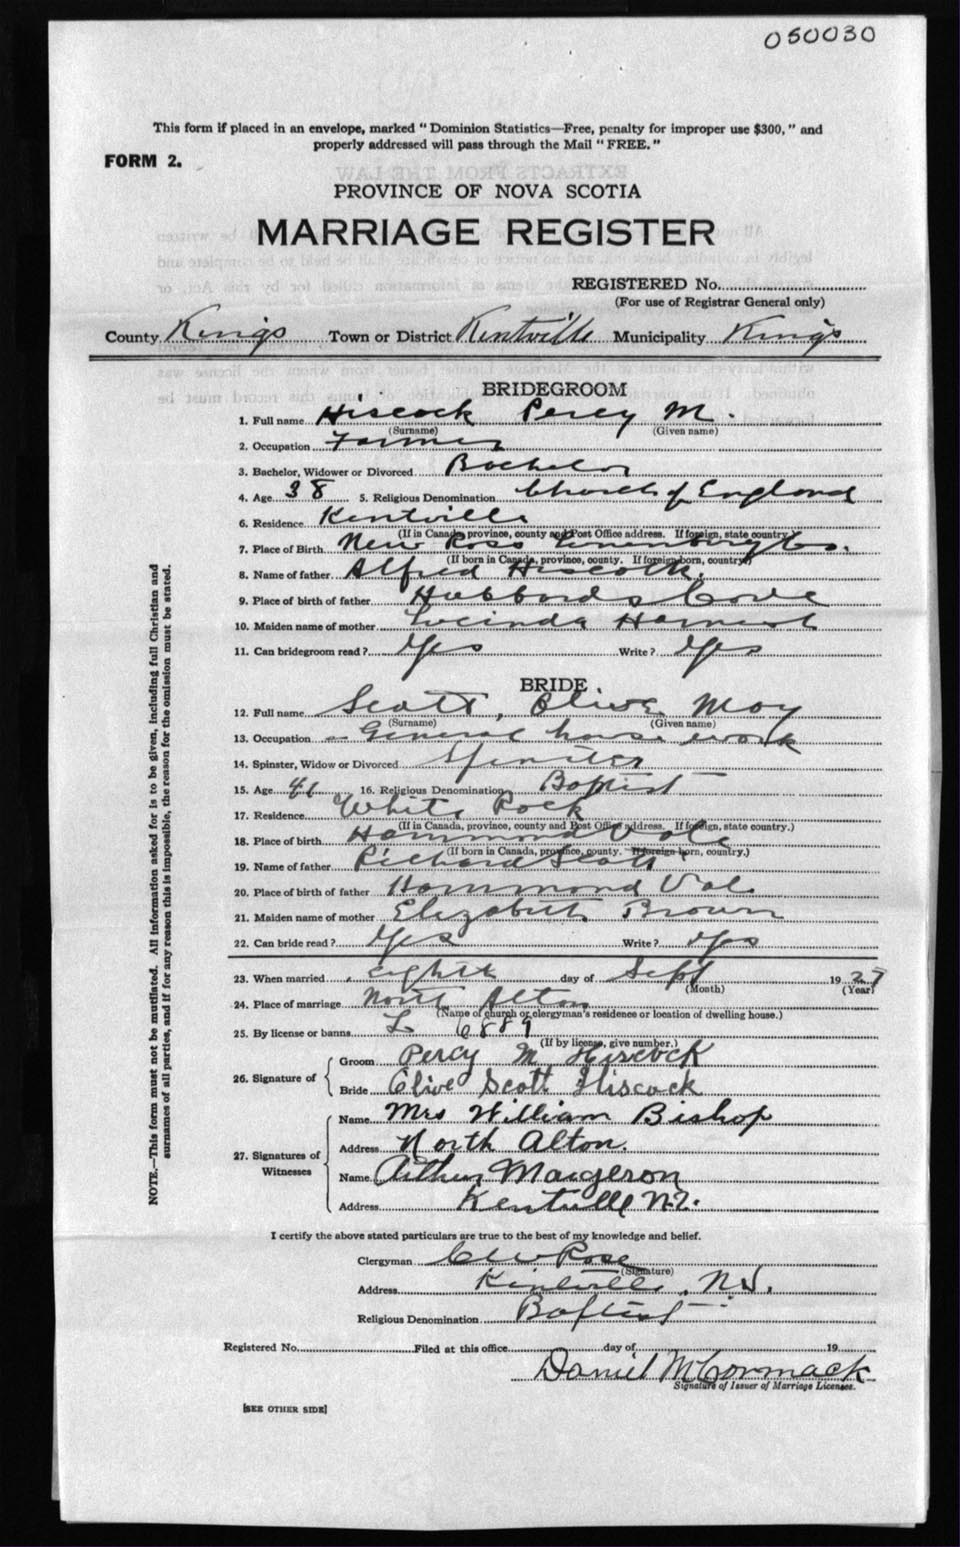 050030
This form if placed in an envelope, marked "Dominion Statistics—Free, penalty for improper use $300," and
properly addressed will pass through the Mail "FREE."
FORM 2.
PROVINCE OF NOVA SCOTIA
MARRIAGE REGISTER
REGISTERED No.
(For use of Registrar General only)
County Kings Town or District Kentville Municipality Kings
BRIDEGROOM
1. Full name Hiscock Percy M.
(Surname) (Given name)
2. Occupation Farmer
3. Bachelor, Widower or Divorced Bachelor
4. Age 38 5. Religious Denomination Church of England
6. Residence Kentville
(If in Canada, province, county and Post Office address. If foreign, state country)
7. Place of Birth New Ross Lunenburg Co.
(If born in Canada, province, county. If foreign born, country)
8. Name of father Alfred Hiscock.
9. Place of birth of father Hubbards Cove
10. Maiden name of mother Lucinda
11. Can bridegroom read? Yes Write? Yes
BRIDE
12. Full name Scott, Olive May
(Surname) (Given name)
13. Occupation General house work
14. Spinster, Widow or Divorced Spinster
15. Age 41 16. Religious Denomination Baptist
17. Residence White Rock
(If in Canada, province, county and Post Office address. If foreign, state country.)
18. Place of birth Hammond Vale
(If born in Canada, province, county. If foreign born, country.)
19. Name of father Richard Scott
20. Place of birth of father Hammond Vale
21. Maiden name of mother Elizabeth Brown
22. Can bride read? Yes Write? Yes
23. When married eighth day of Sept 1927
(Month) (Year)
24. Place of marriage North Alton
(Name of church or clergyman's residence or location of dwelling house.)
25. By license or banns L 6889
(If by license, give number.)
26. Signature of Groom Percy M Hiscock
Bride Olive Scott Hiscock
27. Signatures of Witnesses Name Mrs William Bishop
Address North Alton.
Name Arthur Margeson
Address Kentville N.S.
I certify the above stated particulars are true to the best of my knowledge and belief.
Clergyman C W Rose
(Signature)
Address Kentville, N.S.
Religious Denomination Baptist
Registered No. Filed at this office day of 19
Daniel McCormack
Signature of Issuer of Marriage Licenses.
[SEE OTHER SIDE]
NOTE.—This form must not be mutilated. All information asked for is to be given, including full Christian and
surnames of all parties, and if for any reason this is impossible, the reason for the omission must be stated.